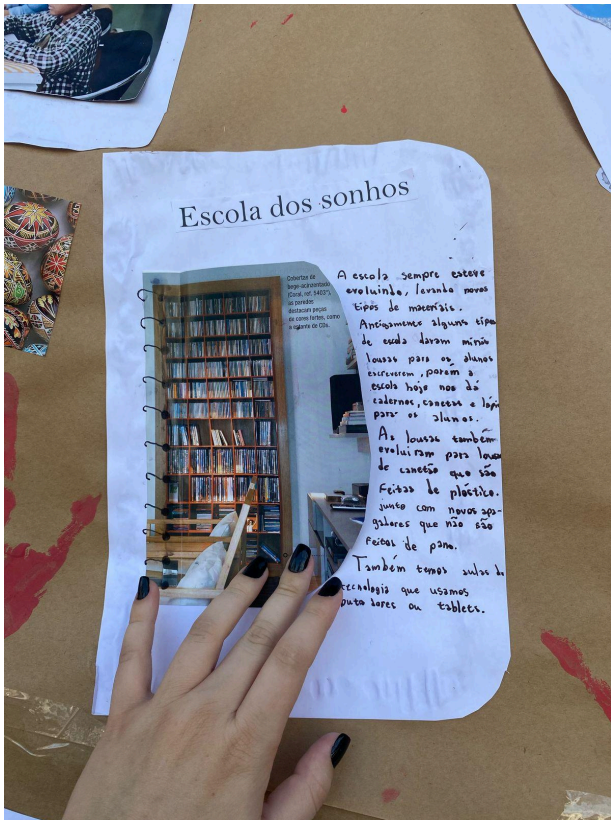 Escola dos sonhos
Cobertas de
bege-acinzentado
(Coral, ref. 5403*),
as paredes
destacam peças
de cores fortes, como
a estante de CDs.
A escola sempre esteve
evoluindo, levando novos
tipos de materiais.
Antigamente alguns tipos
de escola davam minis
lousas para os alunos
escreverem, porém a
escola hoje nos dá
cadernos, canetas e lápis
para os alunos.
As lousas também
evoluiram para lousa
de canetão que são
feitas de plástico.
junto com novos apa-
gadores que não são
feitos de pano.
Também temos aulas de
tecnologia que usamos
ou tablets.